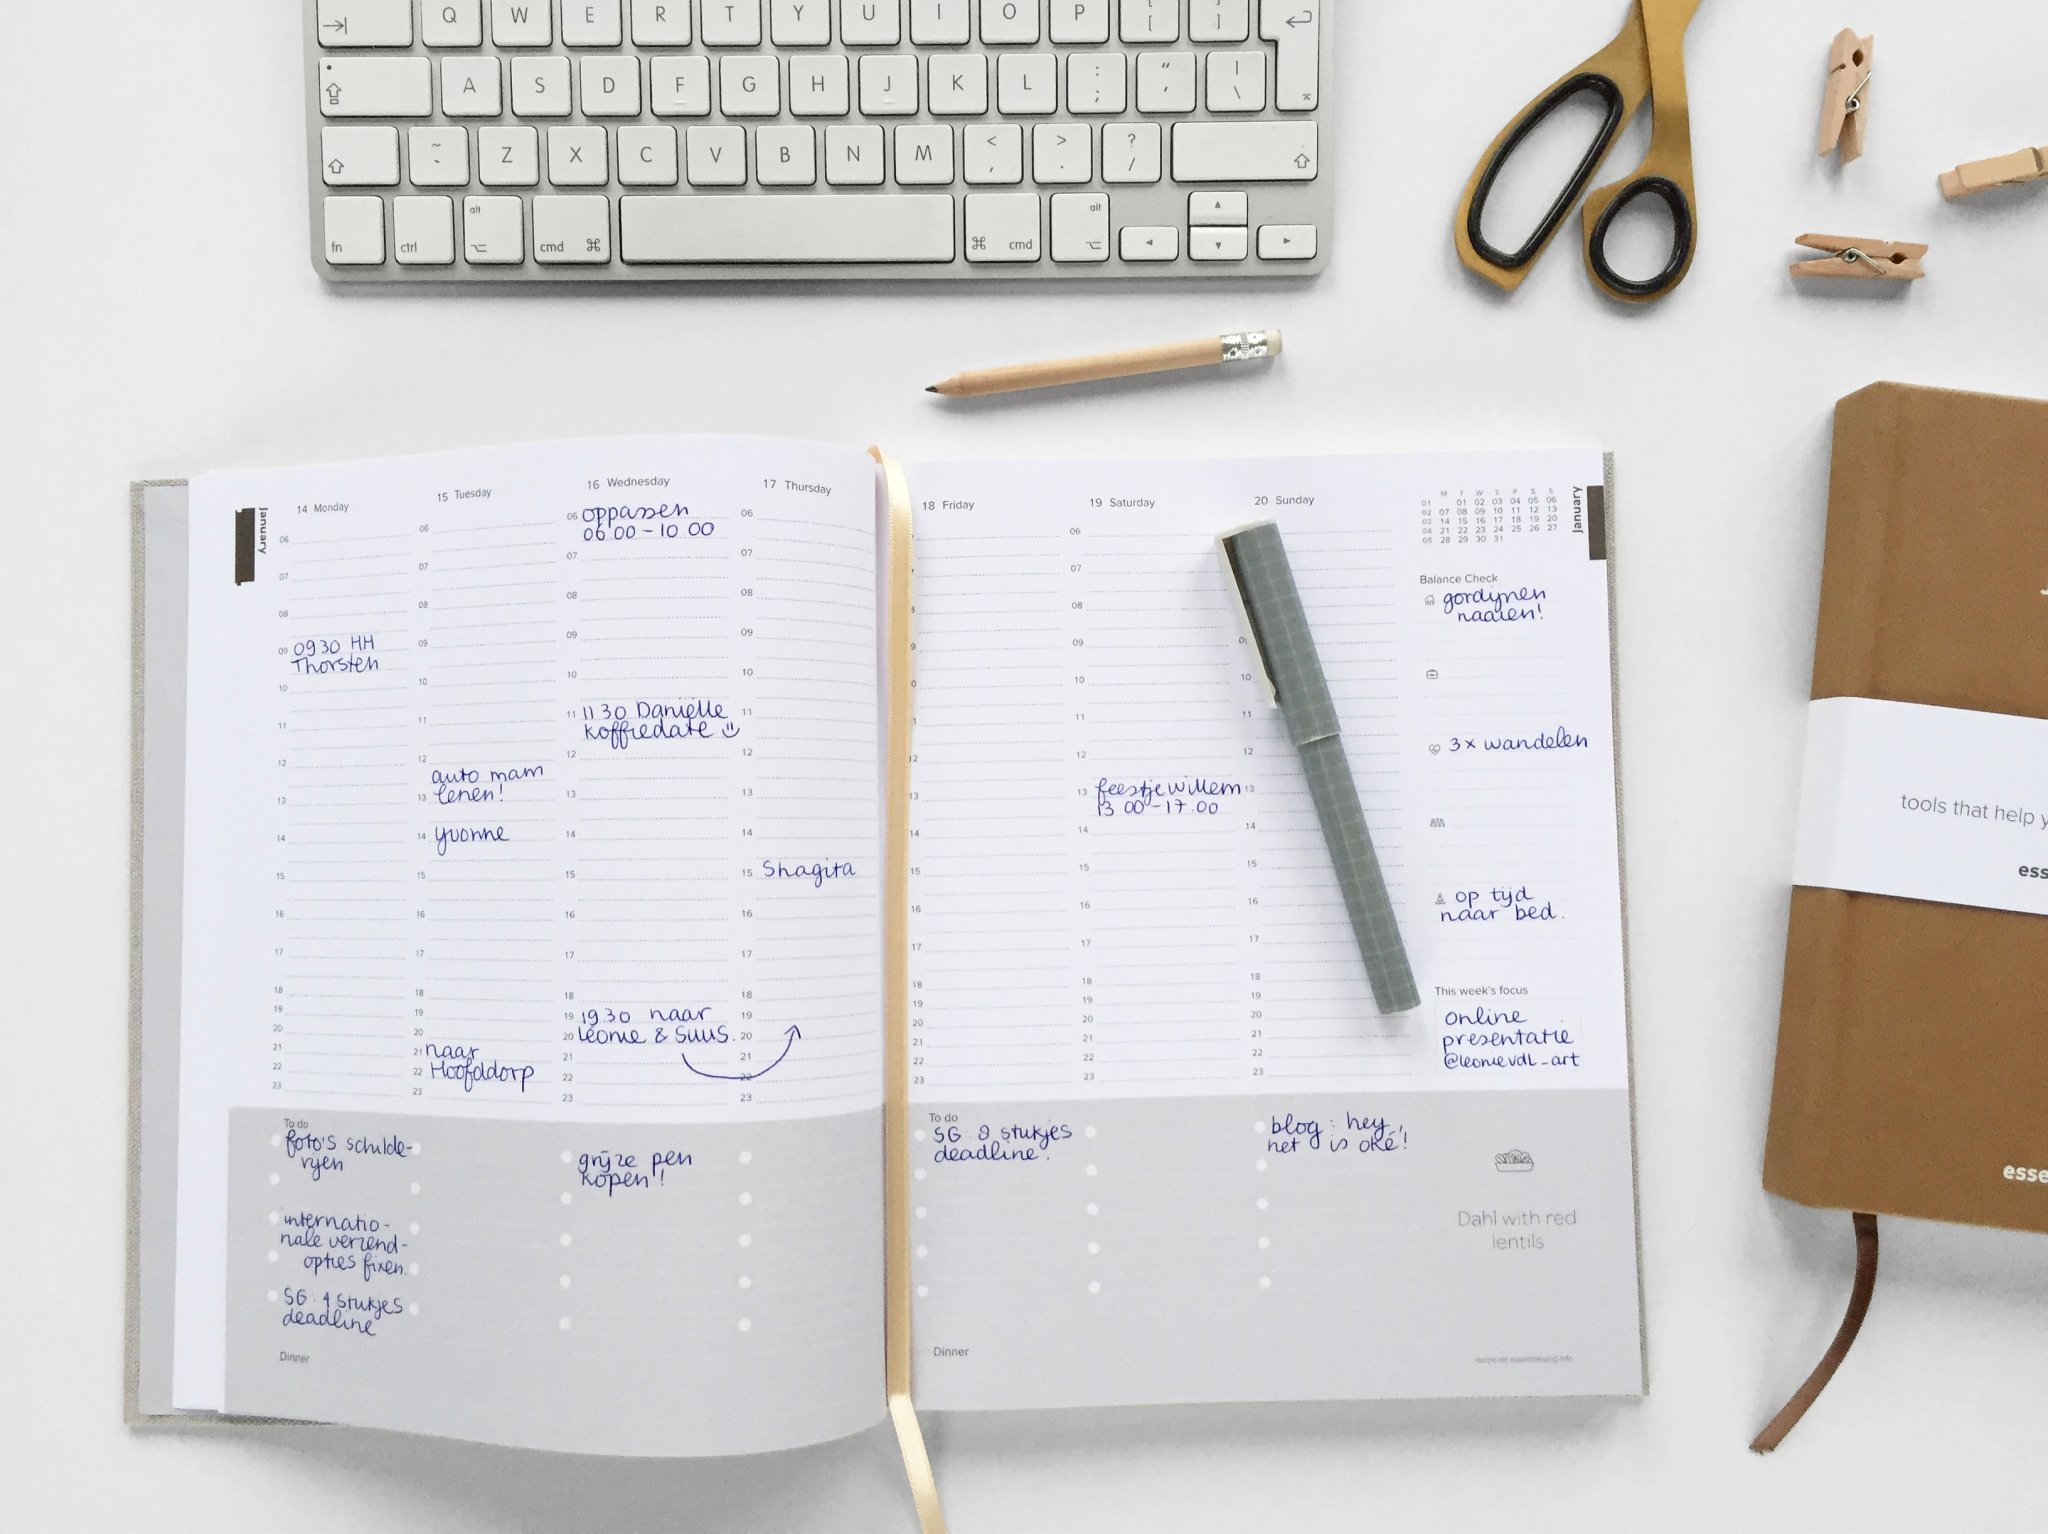 Q W E R T Y U I O P [ [ ] ]
A S D F G H J K L : ; “ ‘ | \
~ ` Z X C V B N M < , > . ? /
fn ctrl alt cmd cmd alt
January
14 Monday
06
07
08
09 0930 HH
Thorsten
10
11
12
13
14
15
16
17
18
19
20
21
22
23
15 Tuesday
06
07
08
09
10
11
12
auto mam
13 lenen!
14 yvonne
15
16
17
18
19
20
21 naar
22 Hoofddorp
23
16 Wednesday
06 oppassen
06.00 - 10.00
07
08
09
10
11 11.30 Daniëlle
koffiedate
12
13
14
15
16
17
18
19 19.30 naar
20 Leonie & Suus.
21
22
23
17 Thursday
06
07
08
09
10
11
12
13
14
15 Shagita
16
17
18
19
20
21
22
23
To do
foto's schilde-
rijen
internatio-
nale verzend-
opties fixen.
SG: 4 stukjes
deadline
grijze pen
kopen!
Dinner
18 Friday
19 Saturday
06
07
08
09
10
11
12
13 feestje willem
13.00 - 17.00
14
15
16
17
18
19
20
21
22
23
20 Sunday
10
11
12
13
14
15
16
17
18
19
20
21
22
23
January
M T W T F S S
01 01 02 03 04 05 06
02 07 08 09 10 11 12 13
03 14 15 16 17 18 19 20
04 21 22 23 24 25 26 27
05 28 29 30 31
Balance Check
gordijnen
naaien!
3x wandelen
op tijd
naar bed.
This week's focus
online
presentatie
@leonievdl_art
To do
deadline.
blog: hey,
het is oké!
Dahl with red
lentils
Dinner
tools that help y
ess
esse